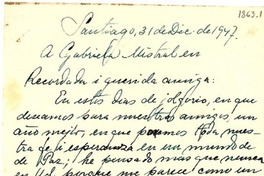 1863.1
Santiago, 31 de Dic. de 1947.
A Gabriela Mistral en
Recordada i querida amiga:
En estos días de jolgorio, en que
deseamos para nuestros amigos, un
año mejor, en que toda nues-
tra fe i esperanza en un mundo
de Paz; he pensado mas que nunca
en Ud. porque me parece como un